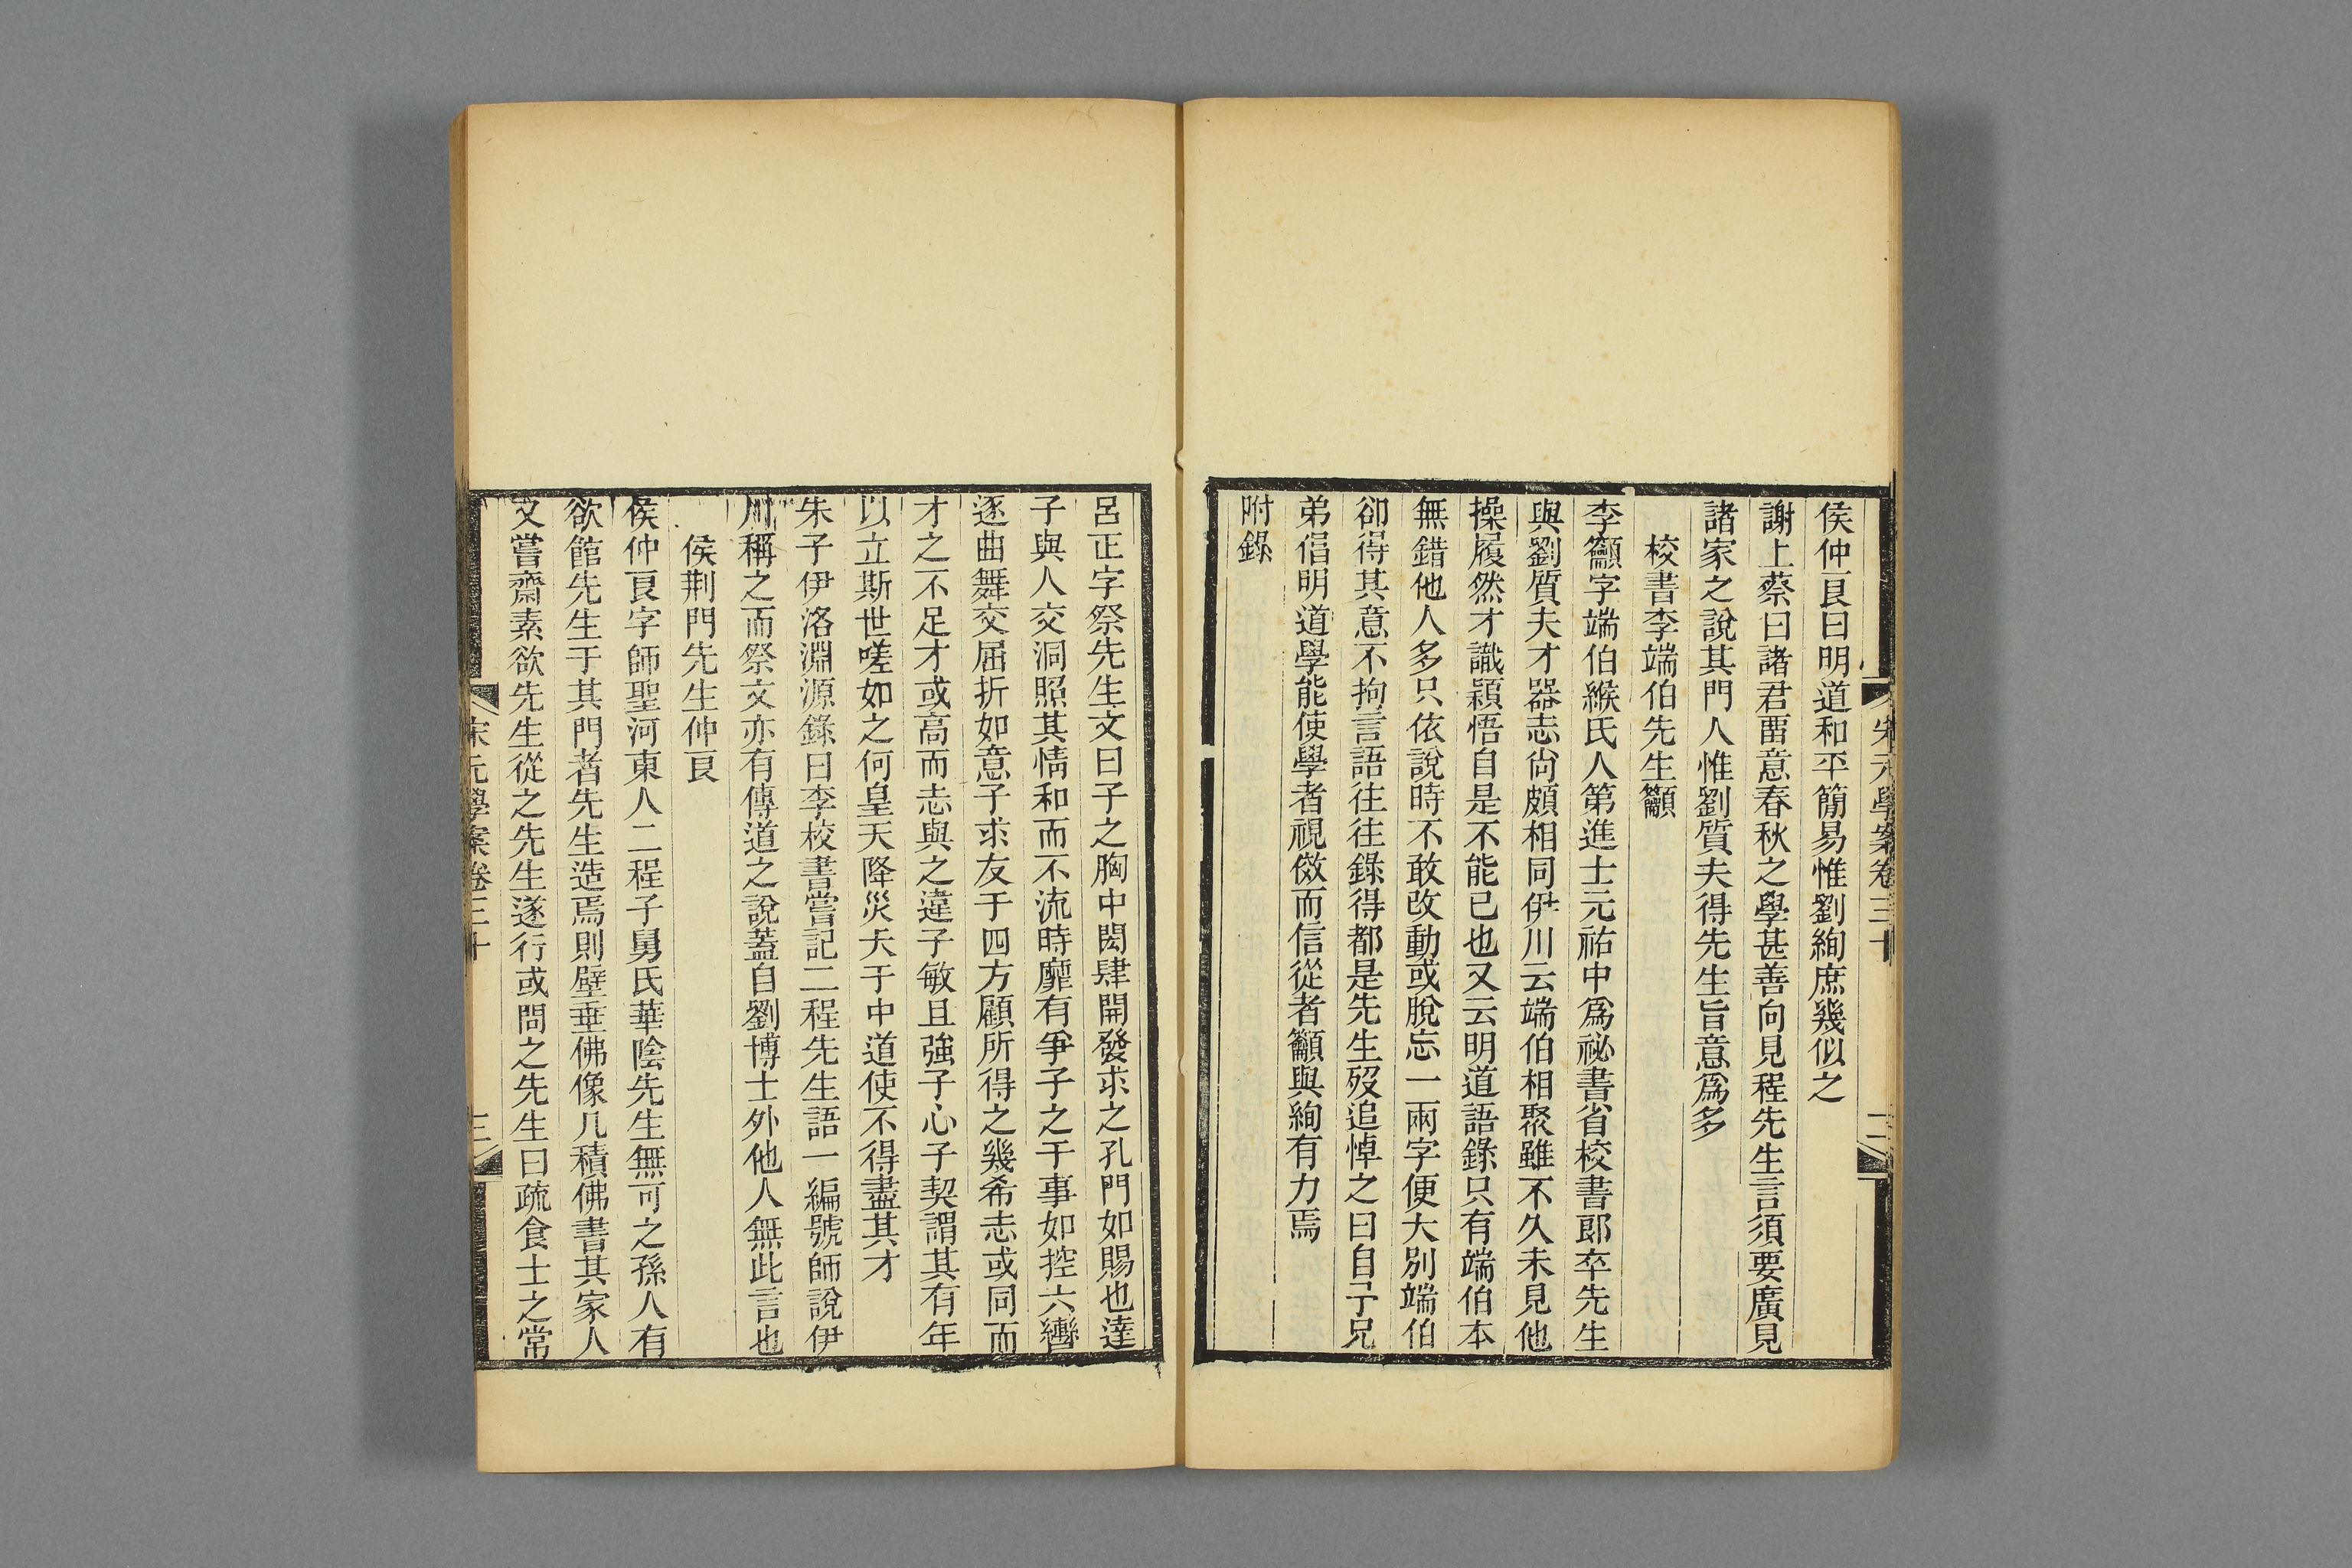 宋元學案卷三十
二
侯仲良曰明道和平簡易惟劉絢庶幾似之
謝上蔡曰諸君畱意春秋之學甚善向見程先生言須要廣見
諸家之說其門人惟劉質夫得先生旨意爲多
校書李端伯先生籲
李籲字端伯緱氏人第進士元祐中爲祕書省校書郎卒先生
與劉質夫才器志尙頗相同伊川云端伯相聚雖不久未見他
操履然才識穎悟自是不能已也又云明道語錄只有端伯本
無錯他人多只依說時不敢改動或脫忘一兩字便大別端伯
卻得其意不拘言語往往錄得都是先生歿追悼之曰自予兄
弟倡明道學能使學者視傚而信從者籲與絢有力焉
附錄
呂正字祭先生文曰子之胸中閎肆開發求之孔門如賜也達
子與人交洞照其情和而不流時靡有爭子之于事如控六轡
逐曲舞交屈折如意子求友于四方顧所得之幾希志或同而
才之不足才或高而志與之違子敏且強子心子契謂其有年
以立斯世嗟如之何皇天降災夭于中道使不得盡其才
朱子伊洛淵源錄曰李校書嘗記二程先生語一編號師說伊
川稱之而祭文亦有傳道之說蓋自劉博士外他人無此言也
侯荆門先生仲良
侯仲良字師聖河東人二程子舅氏華陰先生無可之孫人有
欲館先生于其門者先生造焉則壁垂佛像几積佛書其家人
又嘗齋素欲先生從之先生遂行或問之先生曰疏食士之常
宋元學案卷三十
三